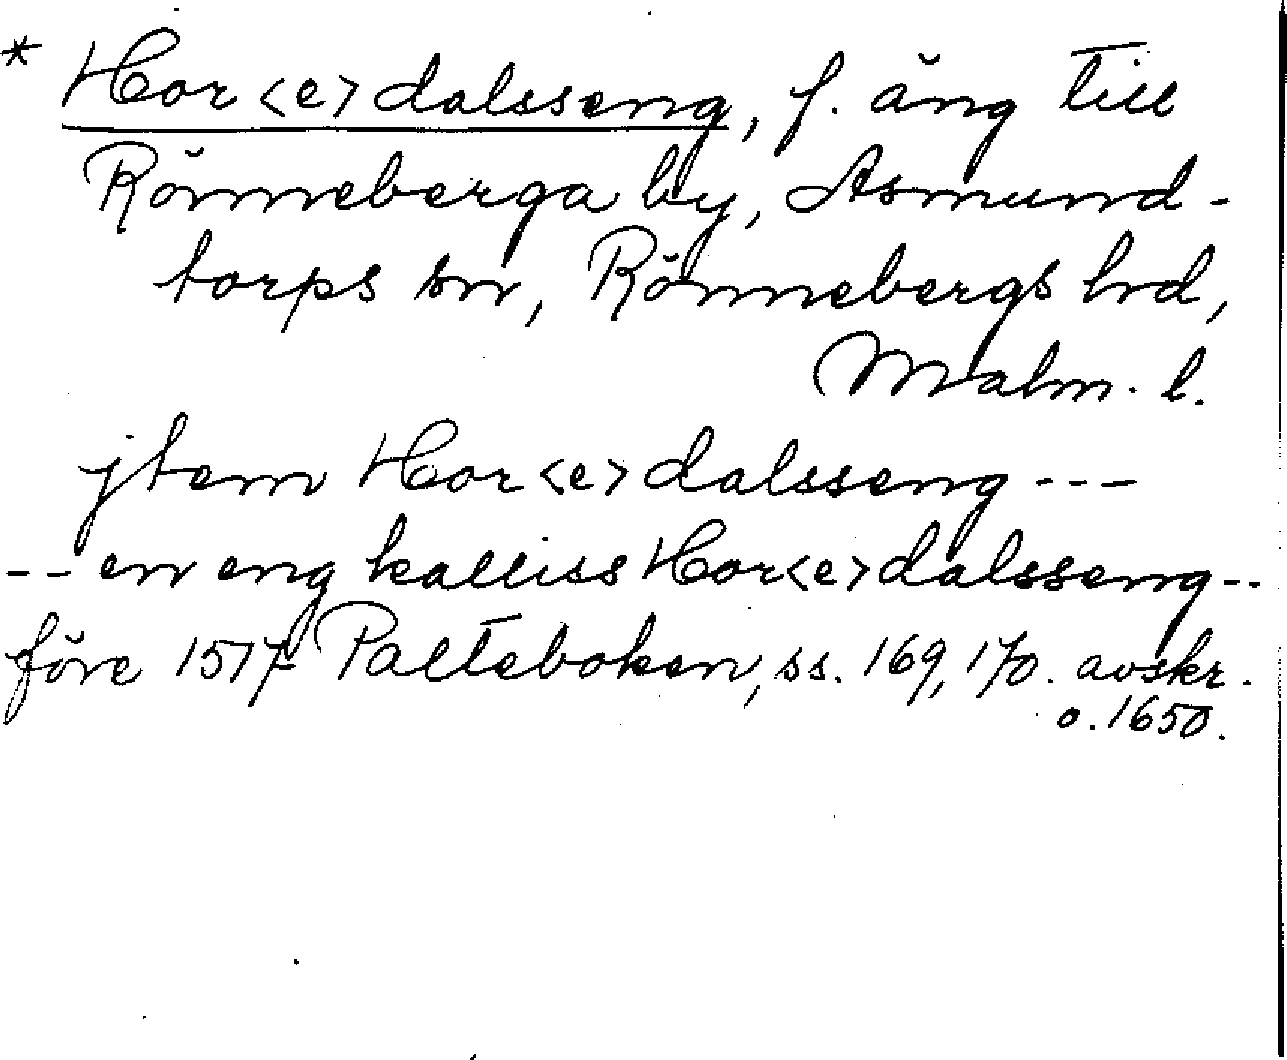 * Hor<e>dalsseng, f. äng till
Rönneberga by, Asmund-
torps sn, Rönnebergs hd,
Malm. l.
jtem Hor<e>dalsseng ---
-- en eng kalliss Hor<e>dalsseng --
före 1517 Palteboken, ss. 169, 170. avskr.
o. 1650.